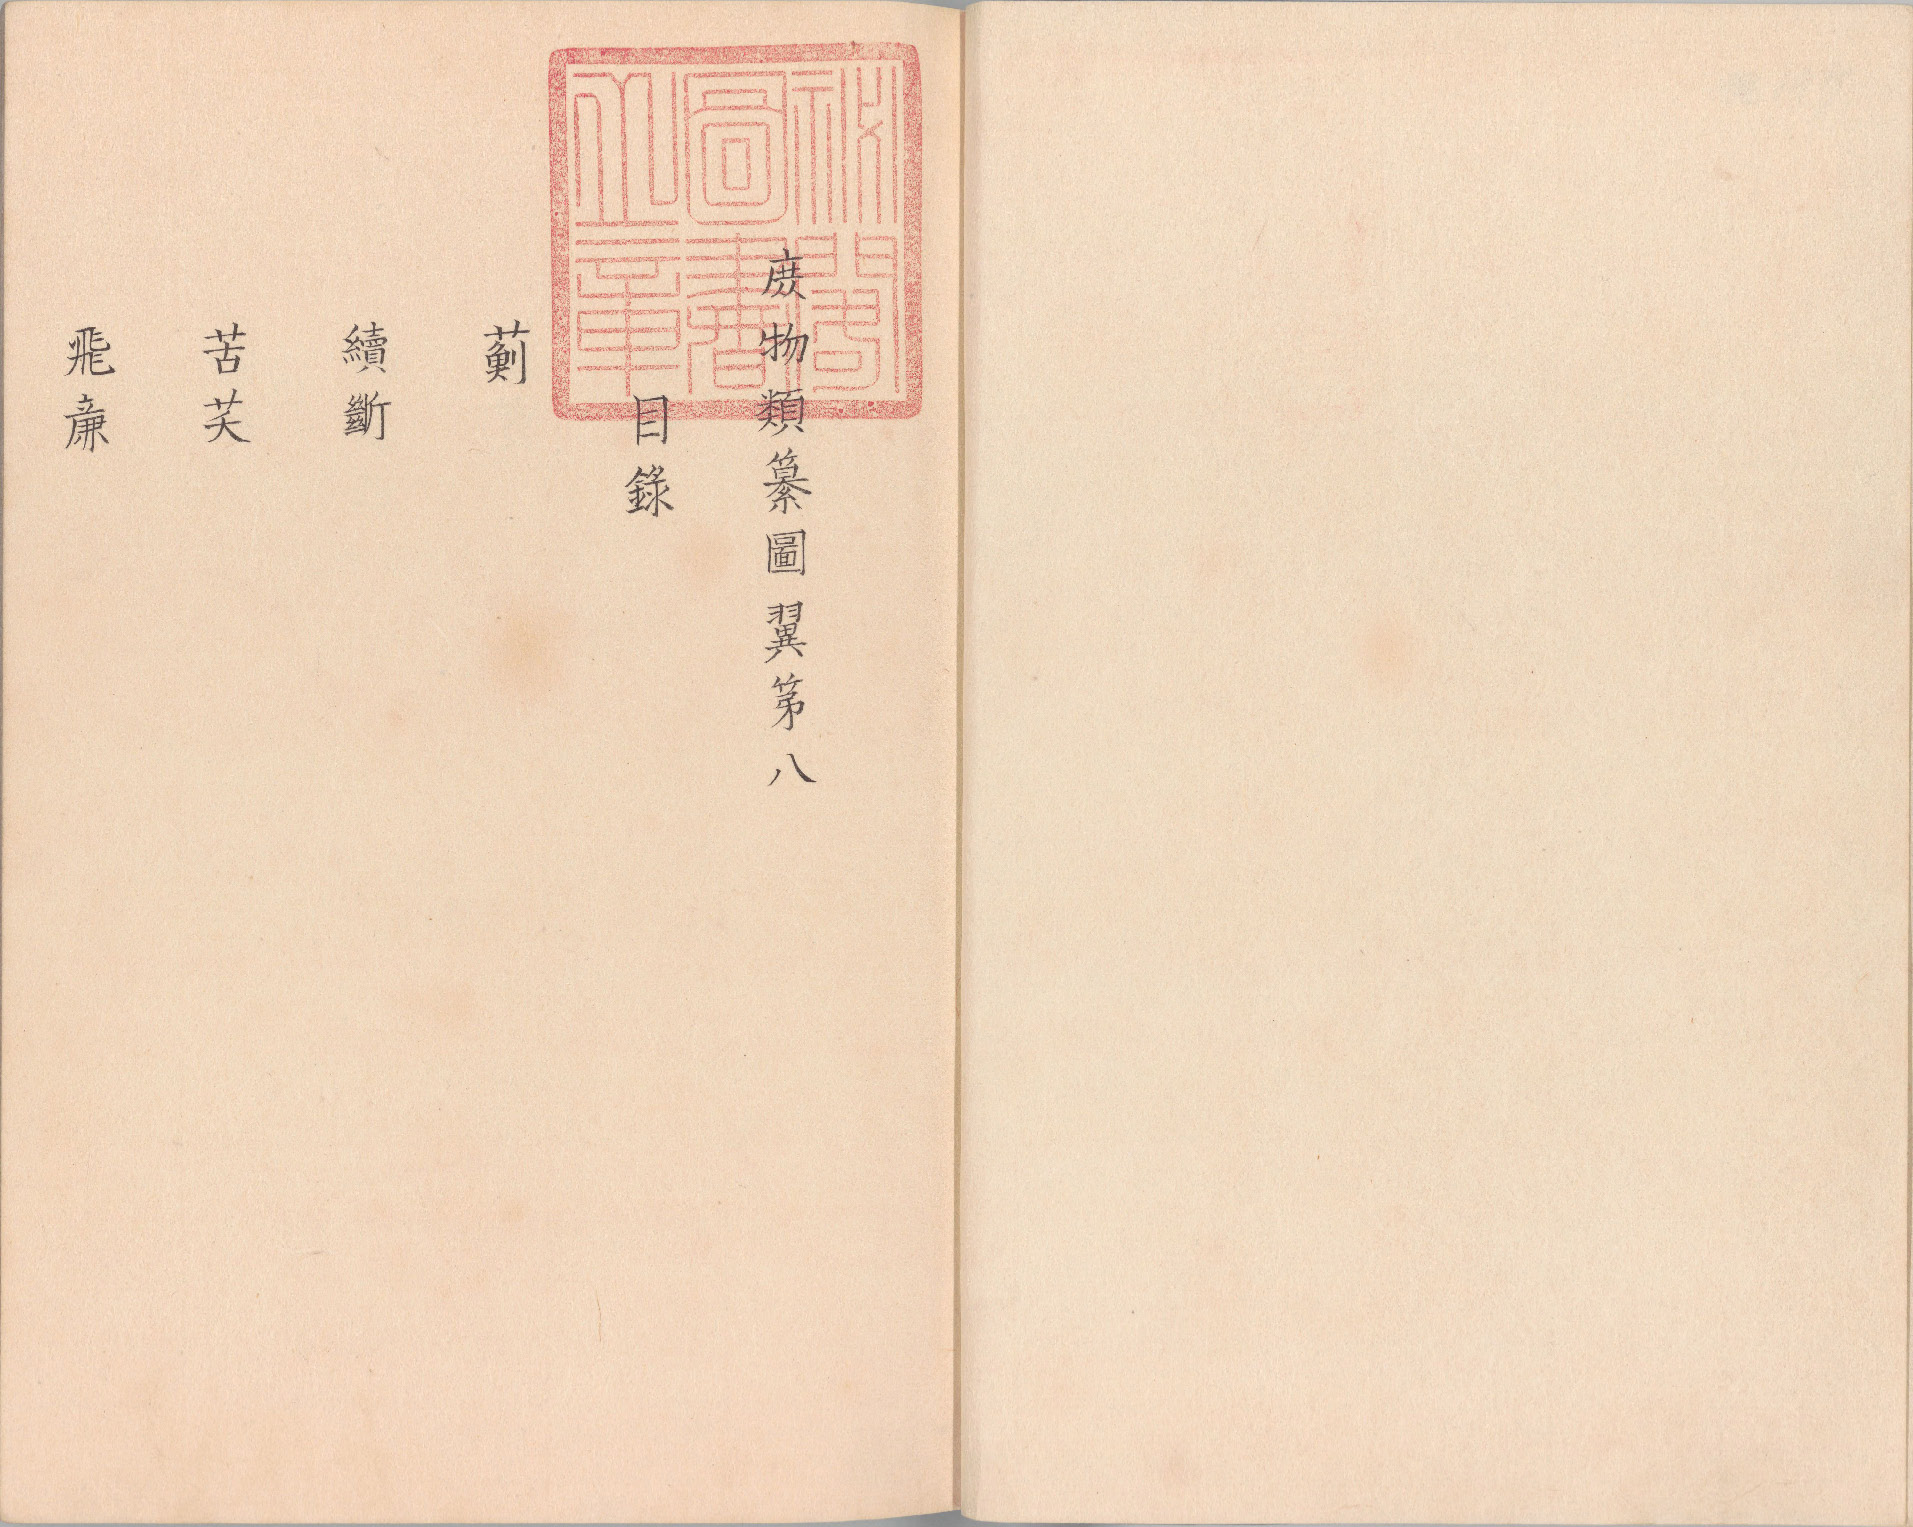 庶物類纂圖翼第八
目錄
薊
續斷
苦芺
飛廉
秘閣圖書之章